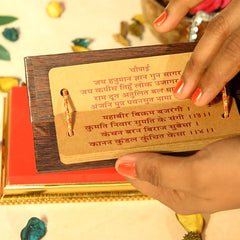 चौपाई
जय हनुमान ज्ञान गुन सागर
जय कपीस तिहुँ लोक उजागर
राम दूत अतुलित बल धामा
अंजनि पुत्र पवनसुत नामा
महाबीर बिक्रम बजरंगी ।
कुमति निवार सुमति के संगी
कंचन बरन बिराज सुबेसा ।
कानन कुंडल कुंचित केसा